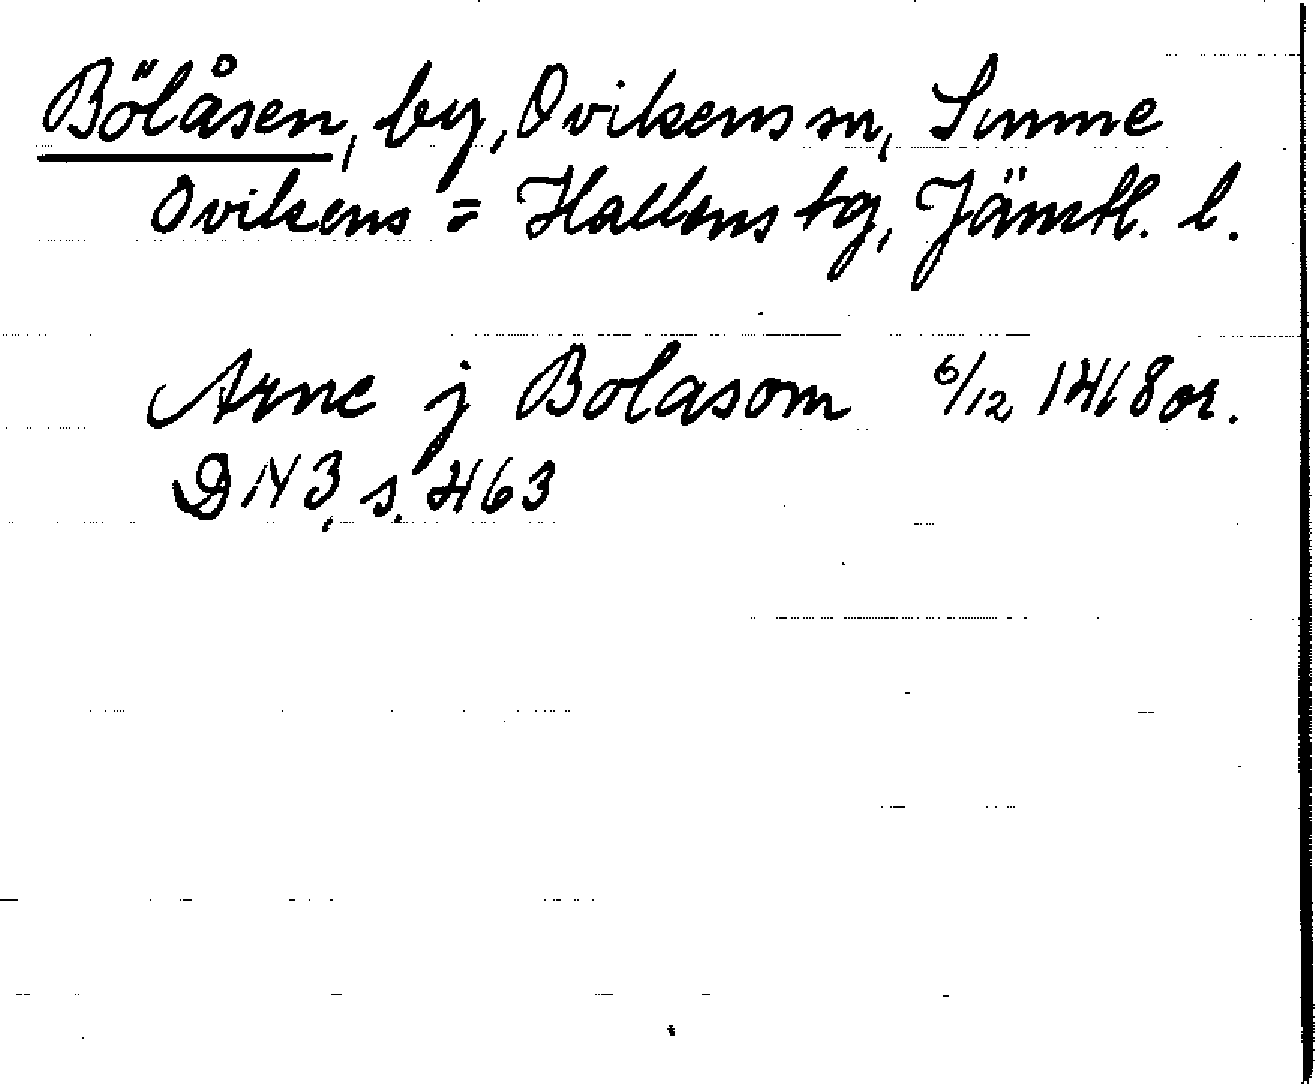 Bölåsen, by, Ovikens sn, Sunne
Ovikens = Hallens tg, Jämtl. l.
Arne j Bolasom 6/12 1418 or.
DN 3, s. 463